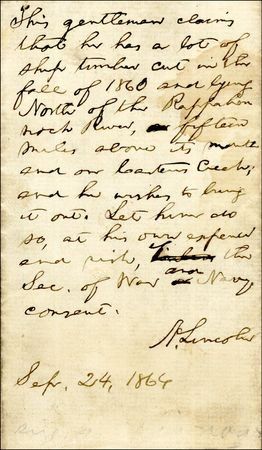 This gentleman claims
that he has a lot of
ship timber cut in the
fall of 1860 and lying
North of the Rappahan
nock River, fifteen
miles above its mouth
and on Creek,
and he wishes to bring
it out. Let him do
so, at his own expense
and risk, the
Sec. of War and Navy
consent.
A. Lincoln
Sep. 24, 1864